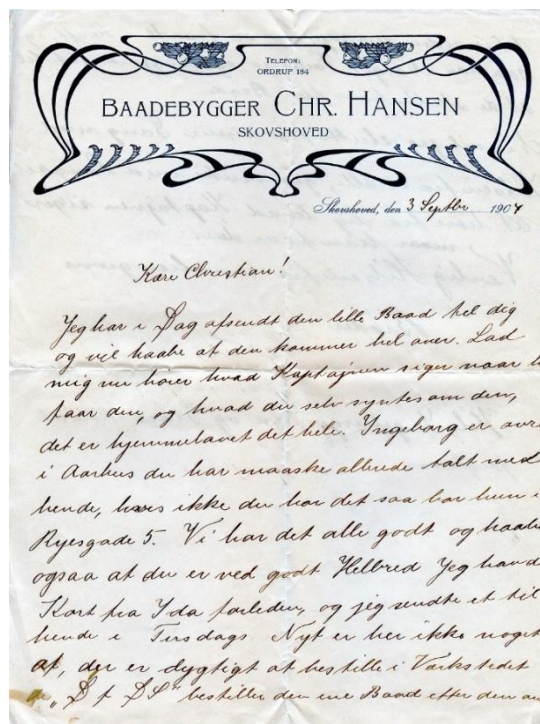 TELEFON:
ORDRUP 184
BAADEBYGGER CHR. HANSEN
SKOVSHOVED
Skovshoved, den 3 Septbr 1907
Kære Christian!
Jeg har i Dag afsendt den lille Baad til dig
og vil haabe at den kommer hel over. Lad
mig nu hører hvad Kaptajnen siger naar
faar den, og hvad du selv syntes om den,
det er hjemmelavet det hele. Ingeborg er
i Aarhus du har maaske allrede talt med
hende, hvis ikke du har det saa bor hun
Ryesgade 5. Vi har det alle godt og
ogsaa at du er ved godt Helbred Jeg
Kort fra Ida forleden, og jeg sendte et til
hende i Tirsdags Nyt er her ikke noget
af, der er dygtigt at bestille i Værkstedet
"D f DS" bestiller den ene Baad efter den